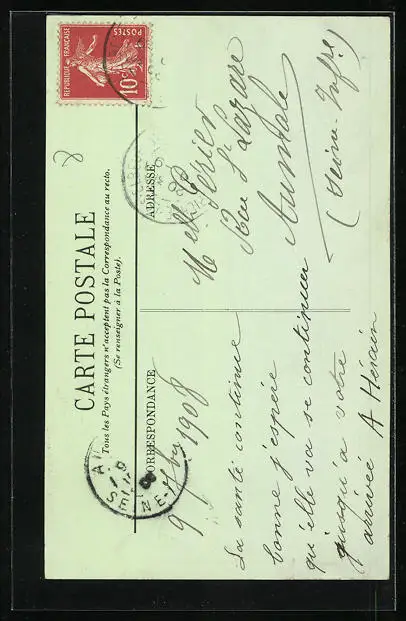 CARTE POSTALE
Tous les Pays étrangers n'acceptent pas la Correspondance au recto.
(Se renseigner à la Poste).
CORRESPONDANCE
ADRESSE
REPUBLIQUE FRANÇAISE
POSTES
10c
9 1908
La santé continue
bonne j'espère
qu'elle va se continuer
jusqu'à votre
arrivée A Hérain
Melle Périer
Rue St Lazare
Aumale
(Seine-Infre)